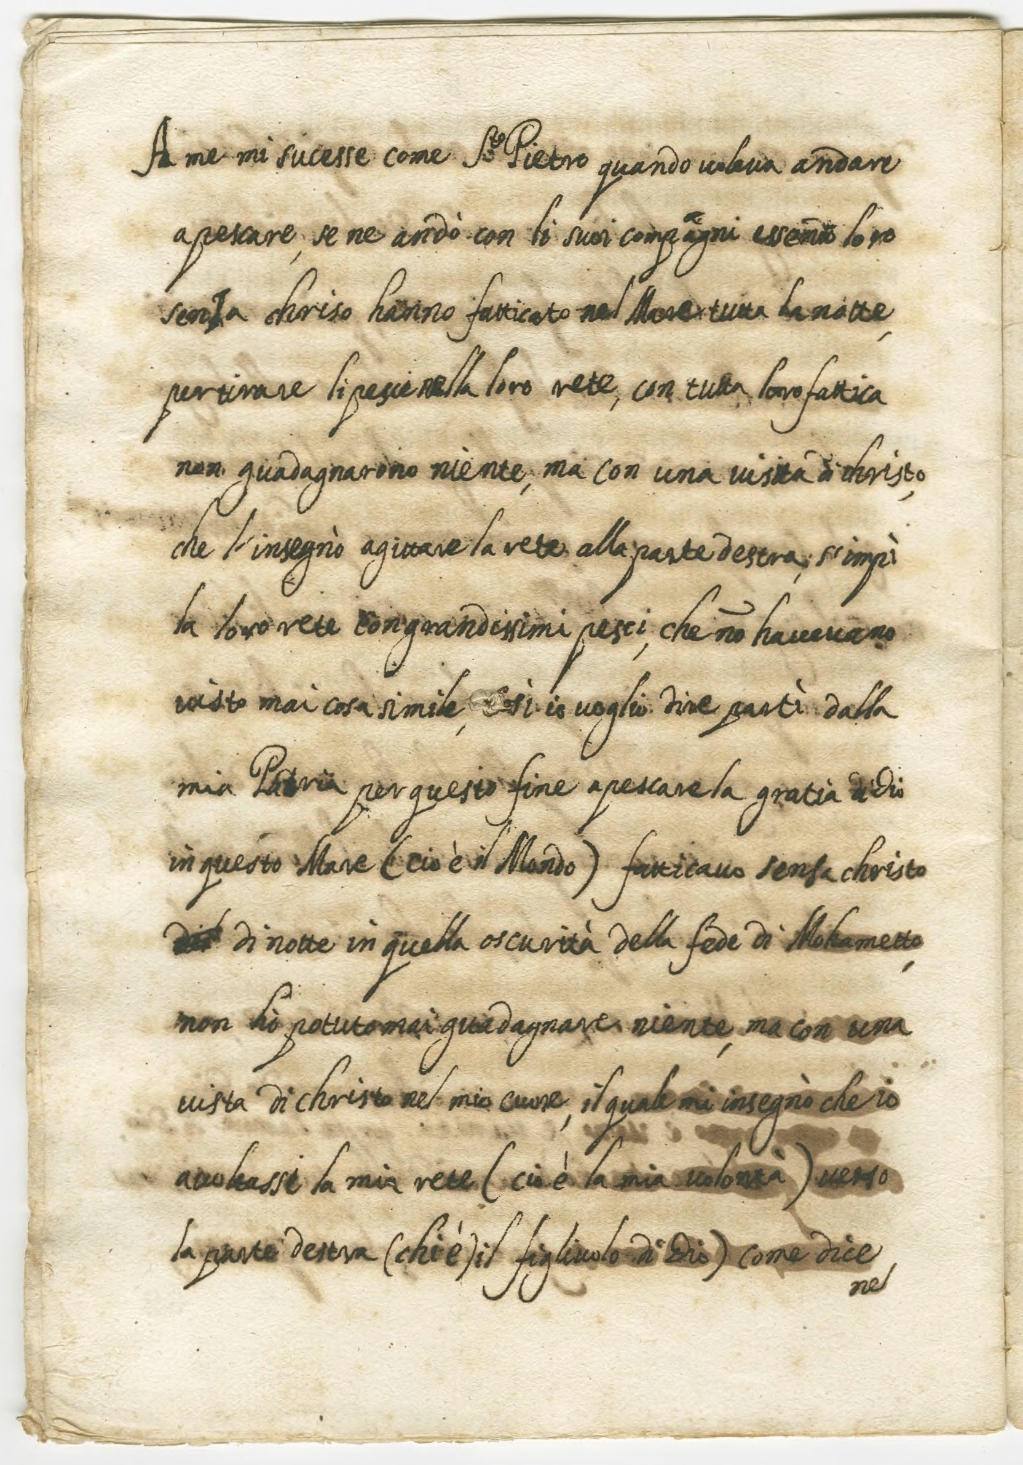 A me mi sucesse come S.to Pietro quando voleva andare
apescare, se ne andò con li suoi compagni essendo loro
senza chriso hanno fatticato nel Mare tutta la notte,
per tirare li pescie nella loro rete, con tutta loro fattica
non guadagnarono niente, ma con una visita di christo,
che l'insegnò agittare la rete alla parte destra, s'impì
la loro rete con grandissimi pesci, che nõ havevano
visto mai cosa simile, Così io voglio dire partì dalla
mia Patria per questo fine apescare la gratia di Dio
in questo Mare (ciò è il Mondo) fatticavo sensa christo
di notte in quella oscurità della fede di Mohametto,
non hò potuto mai guadagnare niente, ma con una
vista di christo nel mio cuore, il quale mi insegnò che io
avoltassi la mia rete (ciò è la mia volontà) verso
la parte destra (chi è) il figlivolo di Dio) come dice
nel